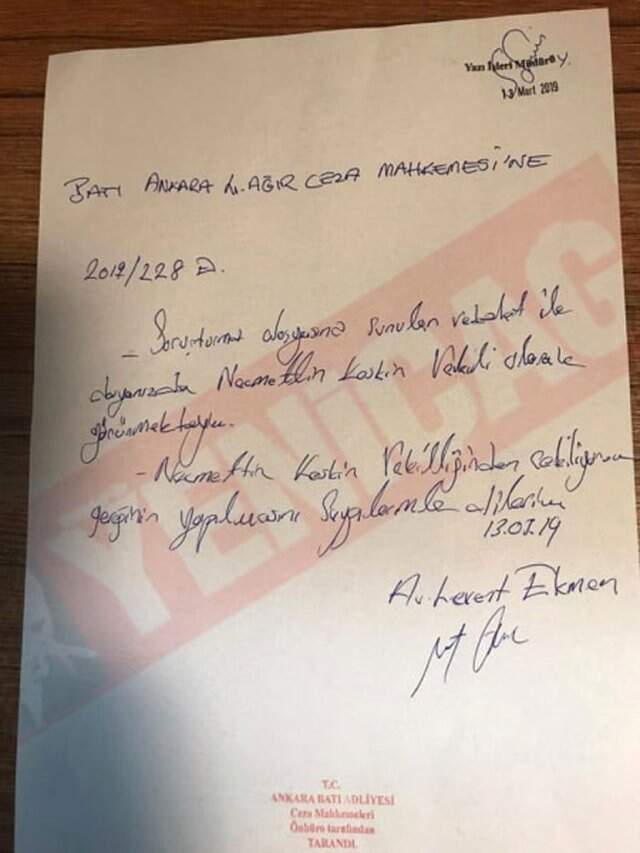 Yazı İşleri Müdürü Y.
13 Mart 2019
BATI ANKARA 4. AĞIR CEZA MAHKEMESİ'NE
2017/228 D.
- Soruşturma dosyasına sunulan vekalet ile
dosyanızda Necmettin Keskin Vekili olarak
görünmekteyim.
- Necmettin Keskin Vekilliğinden çekiliyorum
gereğinin yapılmasını saygılarımla dilerim
13.03.19
Av. Levent Ekmen
YENİÇAĞ
T.C.
ANKARA BATI ADLİYESİ
Ceza Mahkemeleri
Önbüro tarafından
TARANDI.